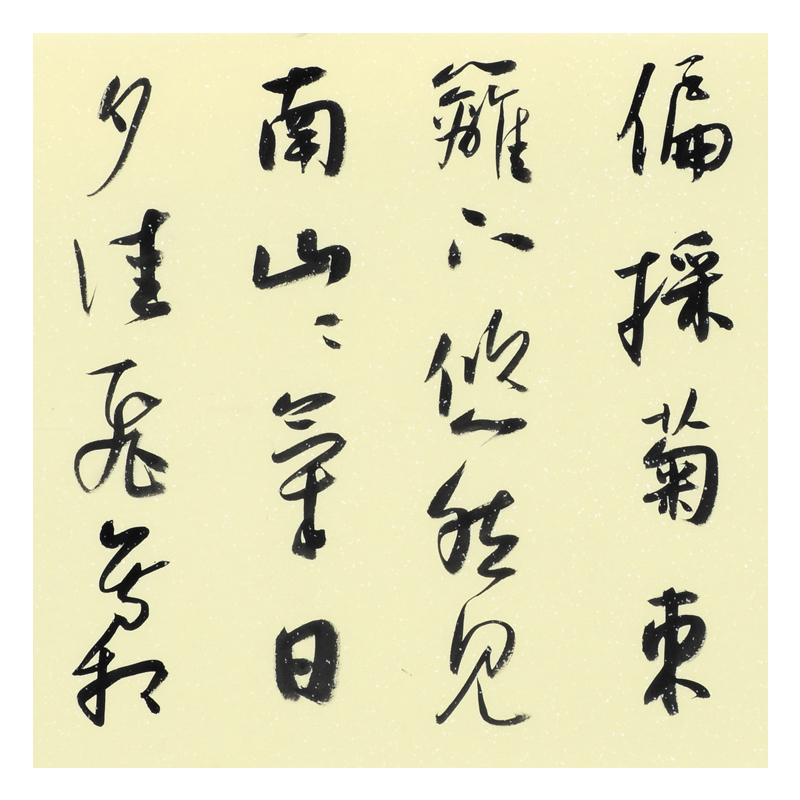 偏採菊東
籬下悠然見
南山山氣日
夕佳飛鳥相